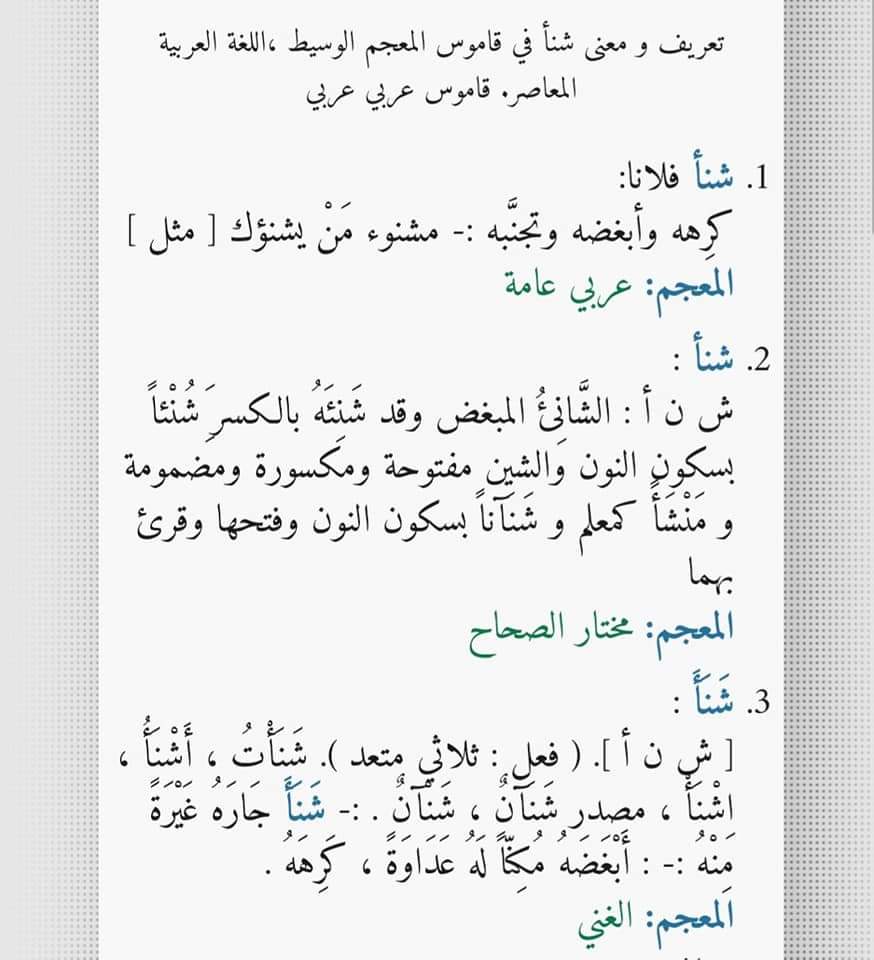 تعريف و معنى شنأ في قاموس المعجم الوسيط ،اللغة العربية
المعاصر. قاموس عربي عربي
1. شنأ فلانا:
كرِهه وأبغضه وتجنَّبه :- مشنوء مَنْ يشنؤك [ مثل ]
المعجم: عربي عامة
2. شنأ :
ش ن أ : الشَّانِئُ المبغض وقد شَنِئَهُ بالكسر شُنْئاً
بسكون النون والشين مفتوحة ومكسورة ومضمومة
و مَنْشَأً كمعلم و شَنَآناً بسكون النون وفتحها وقرئ
بهما
المعجم: مختار الصحاح
3. شَنَأَ :
[ ش ن أ ]. ( فعل : ثلاثي متعد ). شَنَأْتُ ، أَشْنَأُ ،
اِشْنَأْ ، مصدر شَنَآنٌ ، شَنْآنٌ . :- شَنَأَ جَارَهُ غَيْرَةً
مِنْهُ :- : أَبْغَضَهُ مُكِنّاً لَهُ عَدَاوَةً ، كَرِهَهُ .
المعجم: الغني